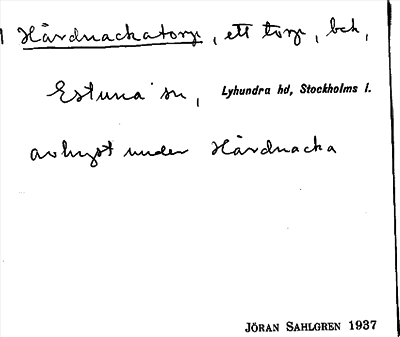 Hårdnackatorp, ett torp, beb,
Estuna sn, Lyhundra hd, Stockholms l.
avhyst under Hårdnacka
JÖRAN SAHLGREN 1937